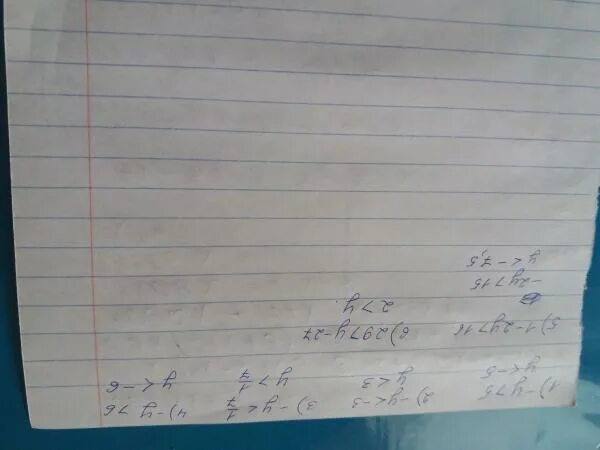 1) -y>5 2) -y<-3 3) -y<1/7 4) -y>6
y<-5 y<3 y>1/7 y<-6
5) 1-2y>16 6) 29>y-27
-2y>15 2>y
y<-7,5